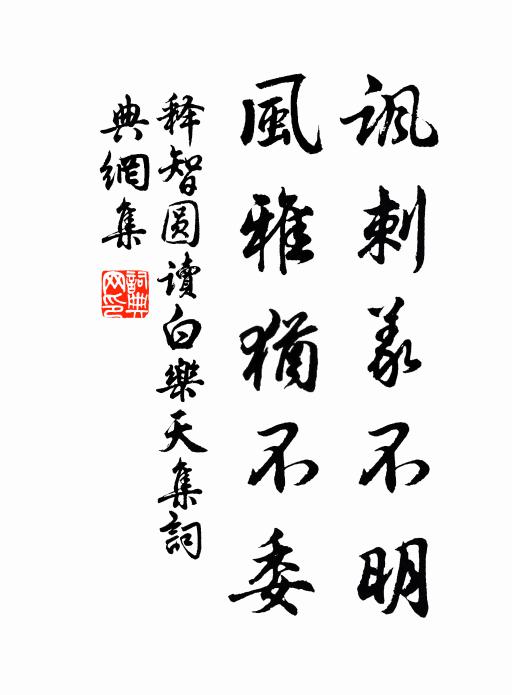 諷刺義不明
風雅猶不委
释智圆讀白樂天集詞
典網集
詞典网印